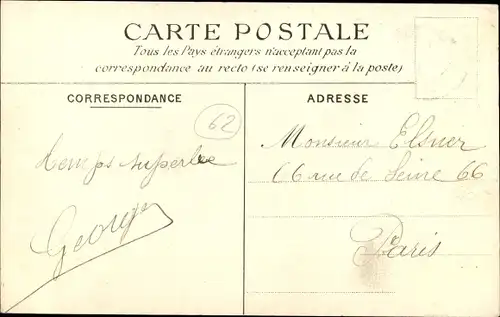 CARTE POSTALE
Tous les Pays étrangers n'acceptant pas la
correspondance au recto (se renseigner à la poste)
CORRESPONDANCE
ADRESSE
62
temps superbe
Georges
Monsieur Elsner
66 rue de Seine 66
Paris